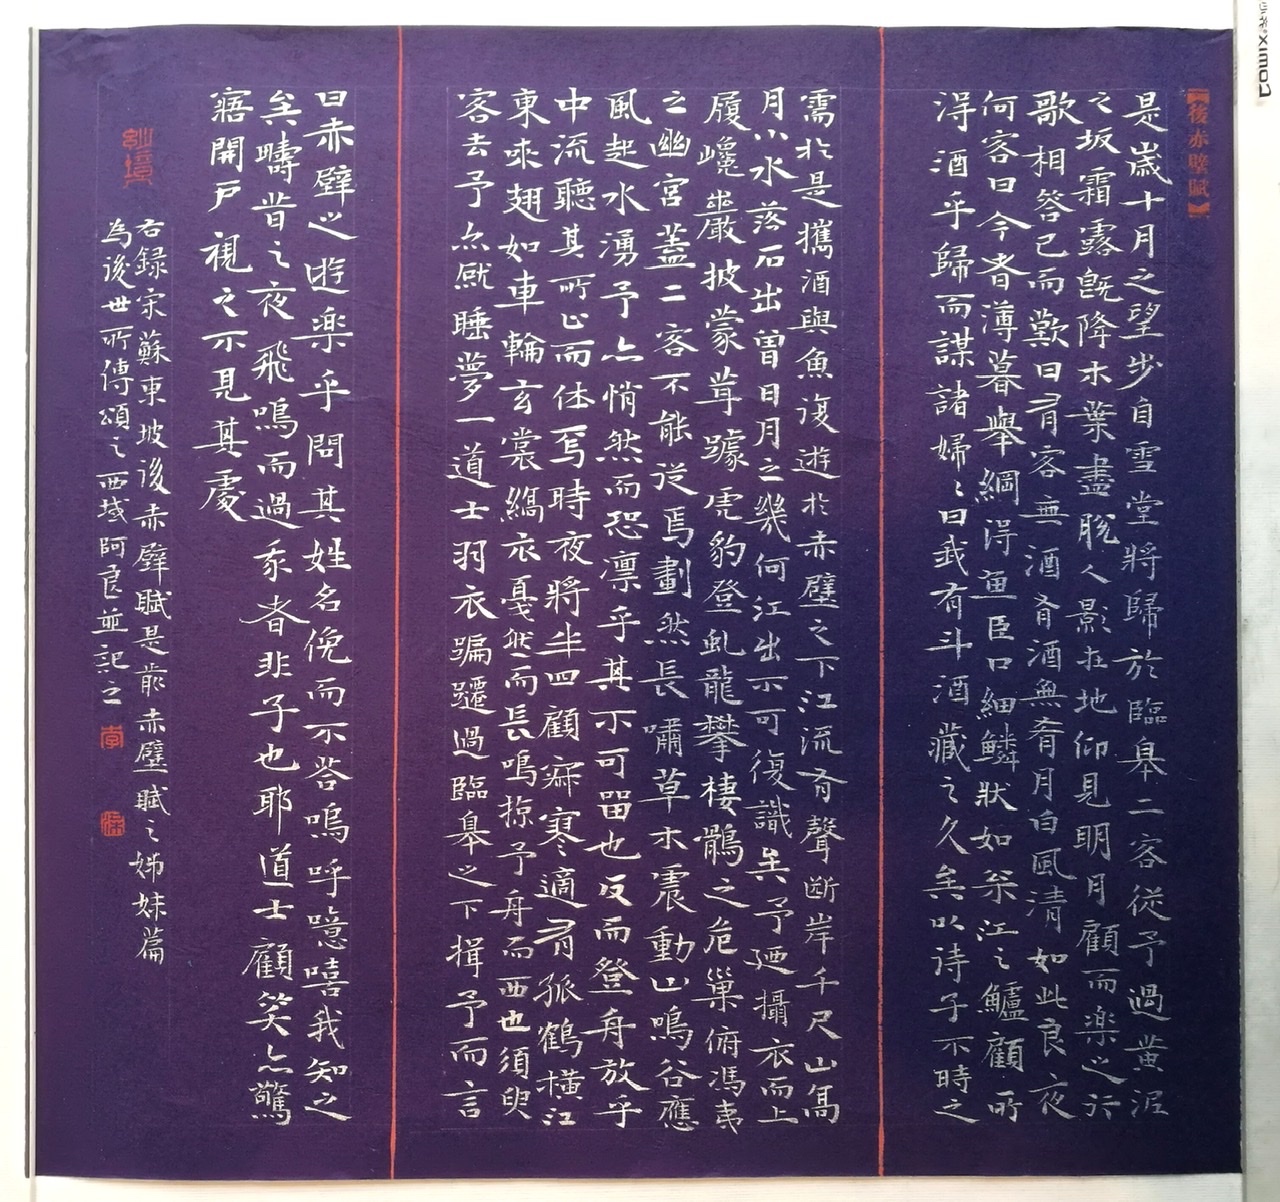 【後赤壁賦】
是歲十月之望步自雪堂將歸於臨皋二客從予過黄泥
之坂霜露既降木葉盡脫人影在地仰見明月顧而樂之行
歌相答已而歎曰有客無酒有酒無肴月白風清如此良夜
何客曰今者薄暮舉網得魚巨口細鱗狀如松江之鱸顧所
得酒乎歸而謀諸婦〻曰我有斗酒藏之久矣以诗子不時之
需於是攜酒與魚復遊於赤壁之下江流有聲断岸千尺山高
月小水落石出曾日月之幾何江出不可復識矣予廼攝衣而上
履巉巖披蒙茸踞虎豹登虬龍攀棲鶻之危巢俯馮夷
之幽宮蓋二客不能從焉劃然長嘯草木震動山鳴谷應
風起水湧予亦悄然而恐凛乎其不可留也反而登舟放乎
中流聽其所止而休焉時夜將半四顧寂寥適有孤鶴橫江
東來翅如車輪玄裳縞衣戛然而長鳴掠予舟而西也須臾
客去予亦就睡夢一道士羽衣蹁躚過臨皋之下揖予而言
曰赤壁之遊樂乎問其姓名俛而不答嗚呼噫嘻我知之
矣疇昔之夜飛鳴而過我者非子也耶道士顧笑亦驚
寤開戶視之不見其處
妙境
右録宋蘇東坡後赤壁賦是前赤壁賦之姊妹篇
為後世所傳頌之西域阿良並記之
李
XIMOQ